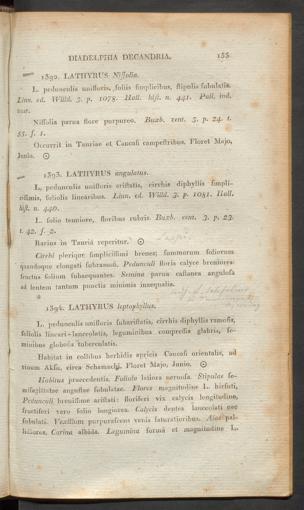 DIADELPHIA DECANDRIA. 155
1392. LATHYRUS Nissolia.
L. pedunculis unifloris, foliis simplicibus, stipulis subulatis.
Linn. ed. Willd. 3. p. 1078. Hall. hist. n. 441. Pall. ind.
taur.
Nissolia parva flore purpureo. Buxb. cent. 3. p. 24. t.
55. f. 1.
Occurrit in Tauriae et Caucasi campestribus. Floret Majo,
Junio. ☉
1393. LATHYRUS angulatus.
L. pedunculis unifloris aristatis, cirrhis diphyllis simpli-
cissimis, foliolis linearibus. Linn. ed. Willd. 3. p. 1081. Hall.
hist. n. 440.
L. folio tenuiore, floribus rubris. Buxb. cent. 3. p. 23.
t. 42. f. 2.
Rarius in Tauria reperitur. ☉
Cirrhi plerique simplicissimi breves; summorum foliorum
quandoque elongati subramosi. Pedunculi floris calyce breviores:
fructus folium subaequantes. Semina parva castanea angulosa
ad lentem tantum punctis minimis inaequalia.
1394. LATHYRUS leptophyllus.
L. pedunculis unifloris subaristatis, cirrhis diphyllis ramosis,
foliolis lineari-lanceolatis, leguminibus compressis glabris, se-
minibus globosis tuberculatis.
Habitat in collibus herbidis apricis Caucasi orientalis, ad
fluum Aksu, circa Schamachi. Floret Majo, Junio. ☉
Habitus praecedentis. Foliola latiora nervosa. Stipulae se-
misagittatae angustae subulatae. Flores magnitudine L. hirsuti,
Pedunculi brevissime aristati: floriferi vix calycis longitudine,
fructiferi vero folio longiores. Calycis dentes lanceolati nec
subulati. Vexillum purpurascens venis saturatioribus. Alae pal-
lidiores. Carina albida. Legumina forma et magnitudine L.